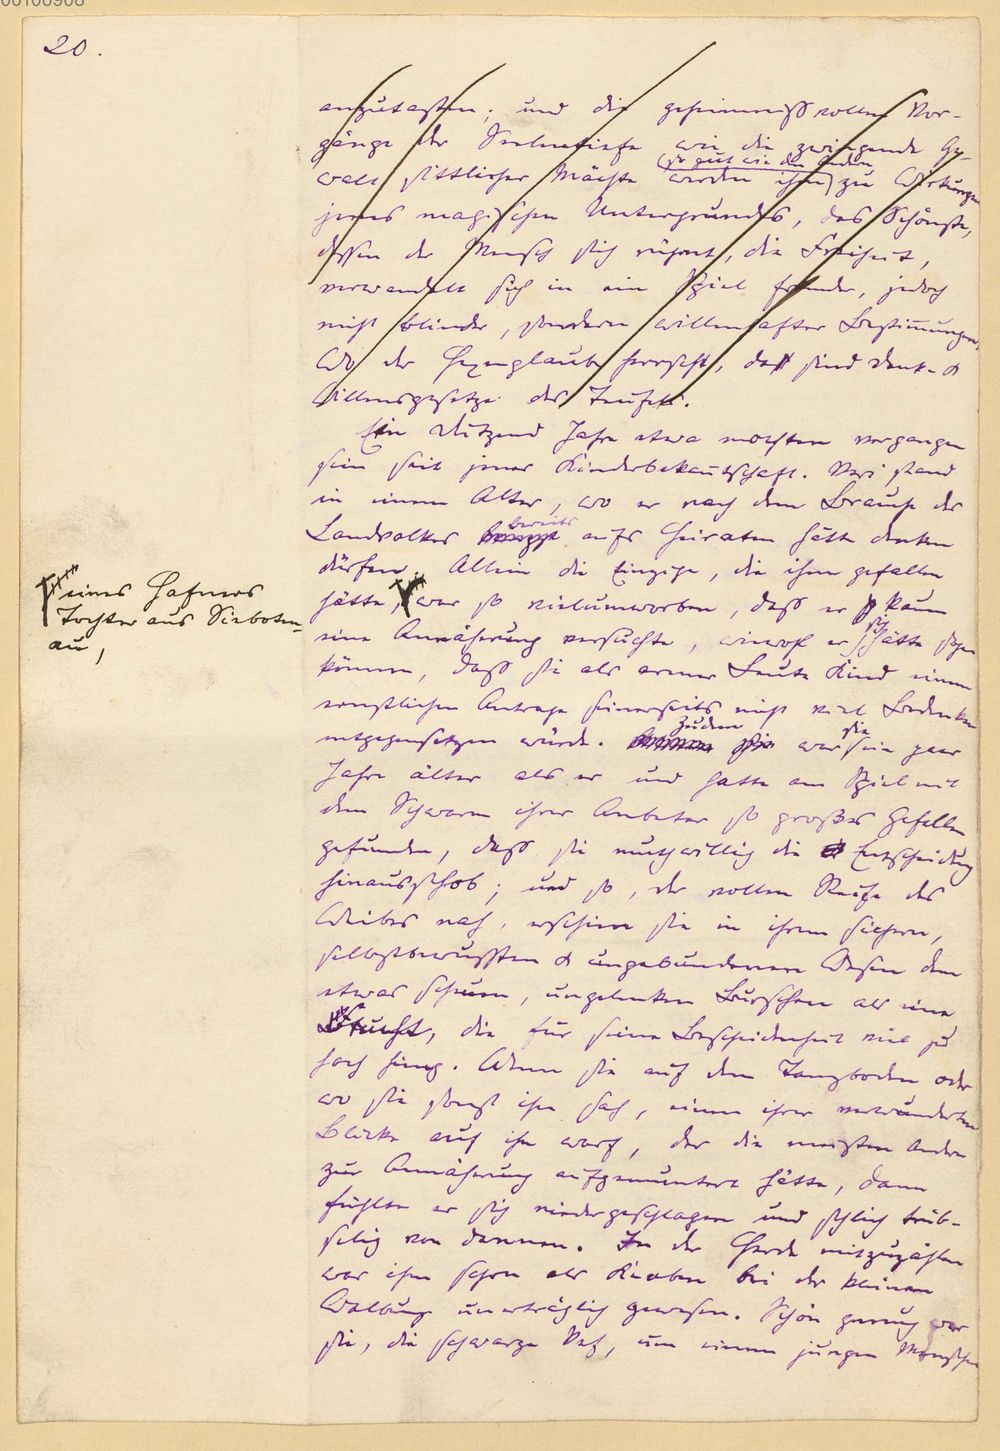 00106908
20.
anzutasten; und die geheimnißvollen Vor-
gänge der Seelentiefe wie die zwingende Ge-
so gut wie den andern
walt sittlicher Mächte werden ihm zu Wirkungen
jenes magischen Untergrundes, das Schönste,
dessen der Mensch sich rühmt, die Freiheit,
verwandelt sich in ein Spiel fremder, jedoch
nicht blinder, sondern willenhafter Bestimmungen.
Wo der Hexenglaube herrscht, da sind Denk- &
Willensgesetze des Teufels.
Ein Dutzend Jahre etwa mochten vergangen
sein seit jener Kinderbekanntschaft. Veri stand
in einem Alter, wo er nach dem Brauche der
Landvolkes bereits aufs Heiraten hätte denken
dürfen. Allein die Einzige, die ihm gefallen
hätte, war so vielumworben, daß er kaum
eines Hafners
Tochter aus Siebotens-
au,
eine Annäherung versuchte, wiewohl er sich hätte sagen
können, daß sie als armer Leute Kind einem
ernstlichen Antrage seinerseits nicht viel Bedenken
entgegensetzen würde. Zudem war sie ein paar
Jahre älter als er und hatte am Spiel mit
dem Schwarm ihrer Anbeter so großes Gefallen
gefunden, daß sie muthwillig die Entscheidung
hinausschob; und so, der vollen Reife des
Weibes nah, erschien sie in ihrem sichern,
selbstbewußten & ungebundenen Wesen dem
etwas scheuen, ungelenken Burschen als eine
Frucht, die für seine Bescheidenheit viel zu
hoch hing. Wenn sie auf dem Tanzboden oder
wo sie sonst ihn sah, einen ihrer verwunderten
Blicke auf ihn warf, der die meisten Andern
zur Annäherung aufgemuntert hätte, dann
fühlte er sich niedergeschlagen und schlich trüb-
selig von dannen. In der Herde mitzuzählen
war ihm schon als Knaben bei der kleinen
Walburg unerträglich gewesen. Schön genug war
sie, die schwarze um einen jungen Menschen